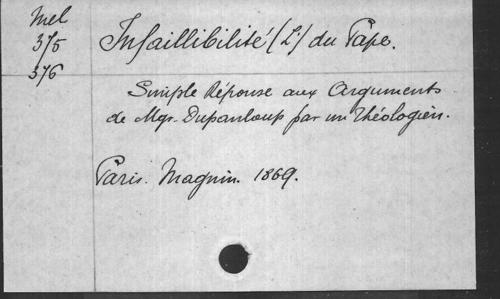 Mel
375
376
Infaillibilité (L') du Pape.
Simple Réponse aux Arguments
de Mgr. Dupanloup par un Théologien.
Paris. Magnin. 1869.